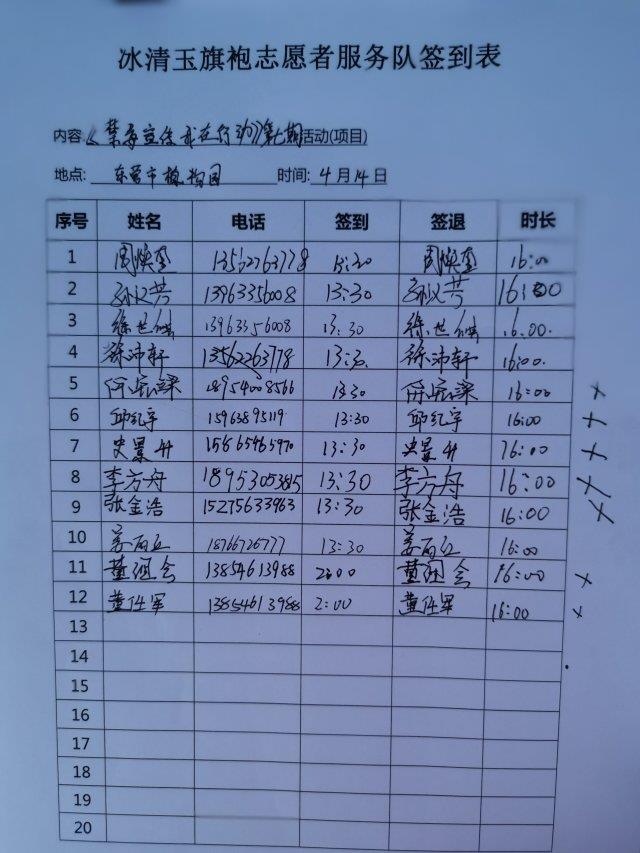 冰清玉旗袍志愿者服务队签到表
内容:《禁毒宣传我在行动》第七期活动(项目)
地点: 东营市植物园 时间: 4月14日
序号 姓名 电话 签到 签退 时长
1 周焕奎 13562263778 13:30 周焕奎 16:00
2 孙义芳 13963356008 13:30 孙义芳 16:00
3 徐世 13963356008 13:30 徐世 16:00.
4 徐沛轩 13562263778 13:30. 徐沛轩 16:00.
5 18954008566 13:30 16:00 ×
6 邱纪宇 15963895119 13:30 邱纪宇 16:00 ×
7 史景升 13:30 史景升 16:00 ×
8 李方舟 18953053815 13:30 李方舟 16:00 ×
9 张金浩 15275633963 13:30 张金浩 16:00 ×
10 18766726777 13:30 16:00
11 董 13854613988 2:00 董 16:00 ×
12 董任军 13854613988 2:00 董任军 16:00 ×
13
14
15
16
17
18
19
20